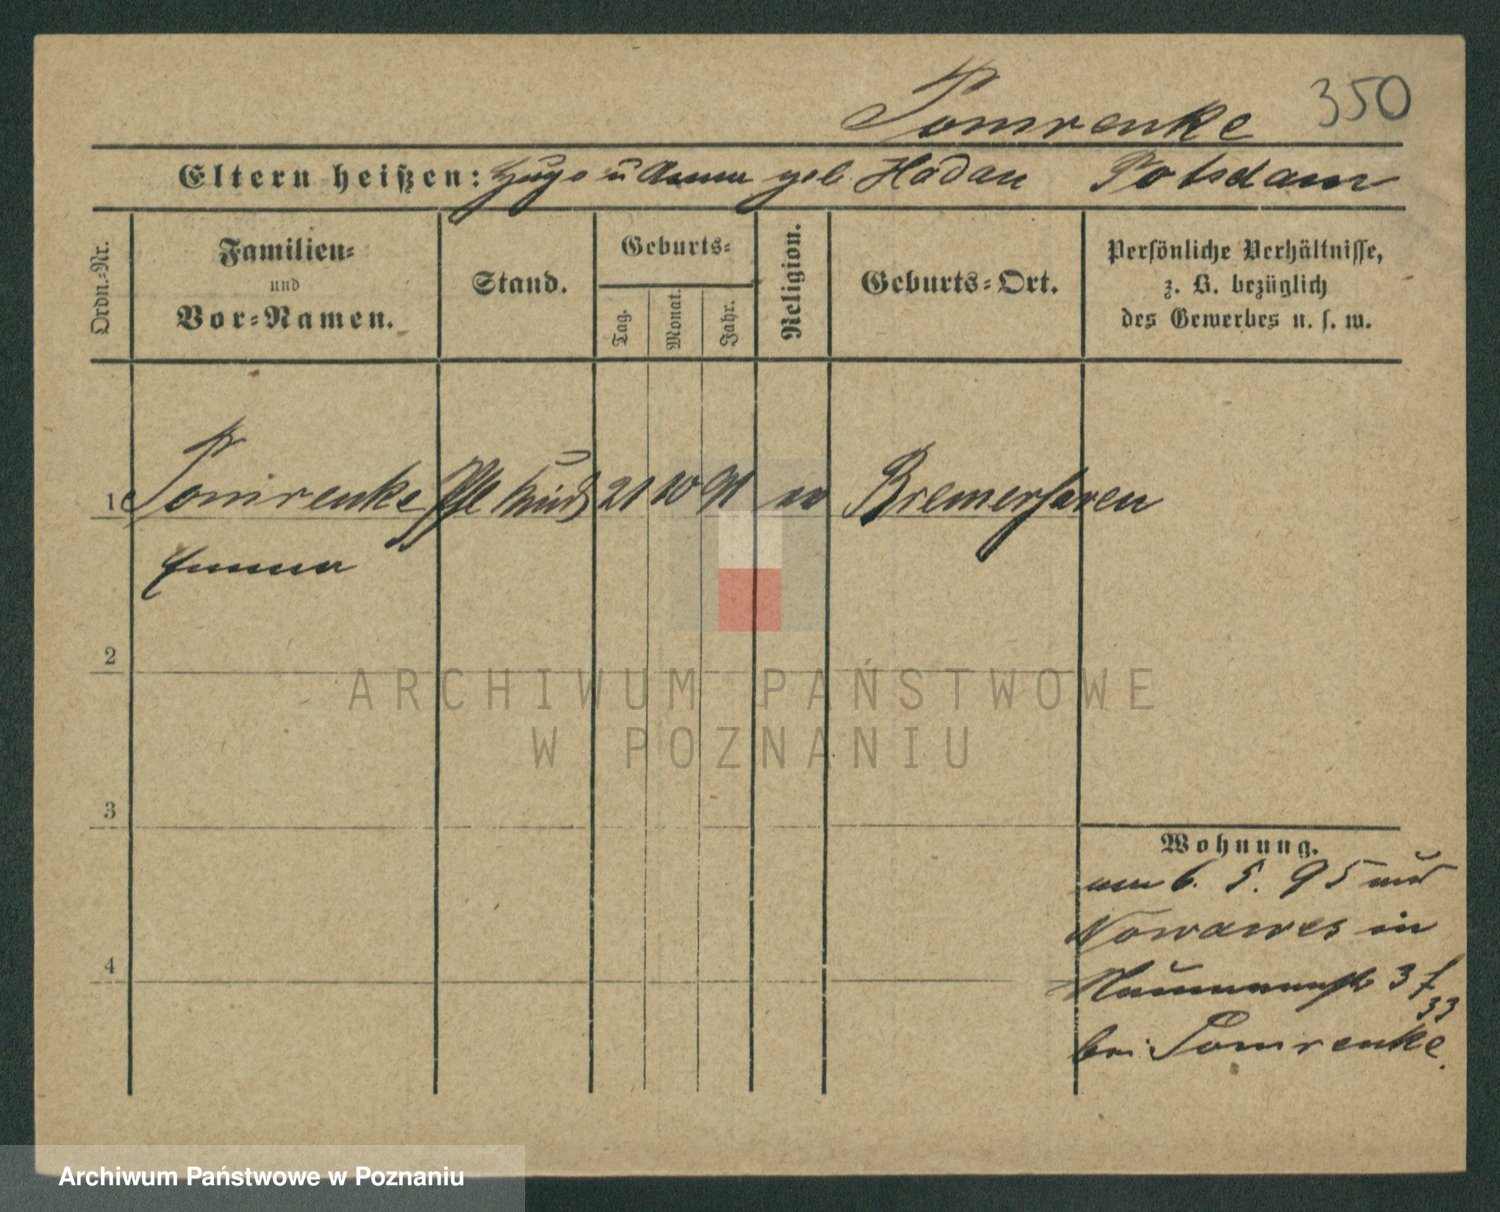 350
Tomrenke
Eltern heißen: Hugo u Anna geb. Hadan Potsdam
Ordn.-Nr.
Familien-
und
Vor-Namen.
Stand.
Geburts-
Tag.
Monat.
Jahr.
Religion.
Geburts-Ort.
Persönliche Verhältnisse,
z. B. bezüglich
des Gewerbes u. s. w.
1 Tomrenke Pfl Kind 21 10 91 ev Bremerhaven
Emma
2
3
4
Wohnung.
am 6. 5. 95 aus
Nowawes in
Naumannstr 37
33
bei Tomrenke.
ARCHIWUM PAŃSTWOWE
W POZNANIU
Archiwum Państwowe w Poznaniu